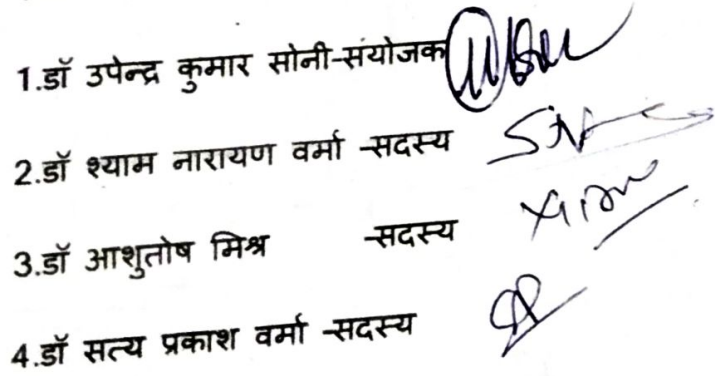 1.डॉ उपेन्द्र कुमार सोनी-संयोजक
2.डॉ श्याम नारायण वर्मा -सदस्य
3.डॉ आशुतोष मिश्र -सदस्य
4.डॉ सत्य प्रकाश वर्मा -सदस्य